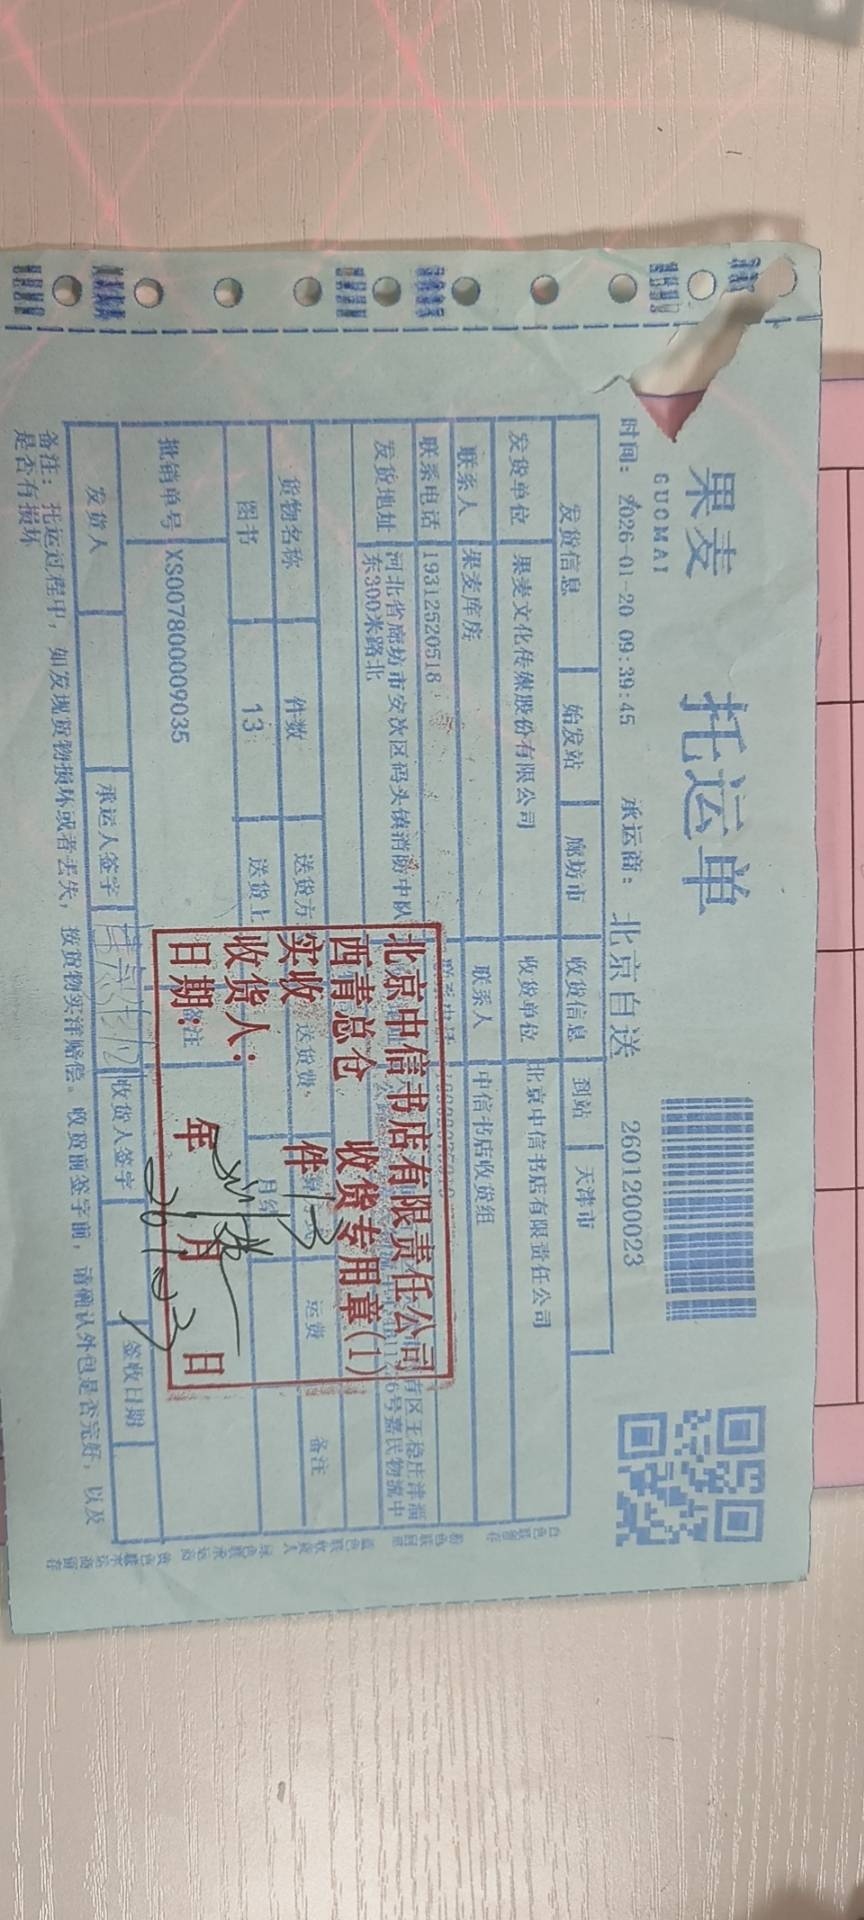 果麦
GUOMAI
托运单
时间：2026-01-20 09:39:45
承运商：北京自送
2601200023
发货信息 始发站 廊坊市 收货信息 到站 天津市
发货单位 果麦文化传媒股份有限公司 收货单位 北京中信书店有限责任公司
联系人 果麦库房 联系人 中信书店收货组
联系电话 19312520518 联系电话
发货地址 河北省廊坊市安次区码头镇消防中队东300米路北
6号嘉民物流中
货物名称 件数 送货方 送货费 运费 备注
图书 13 送货上 月结
批销单号 XS007800009035 备注
发货人 承运人签字 收货人签字 签收日期
备注：托运过程中，如发现货物损坏或者丢失，按货物实洋赔偿。收货前签字前，请确认外包是否完好，以及
是否有损坏
北京中信书店有限责任公司
西青总仓 收货专用章(1)
实收 13 件
收货人：
日期： 年 月 日